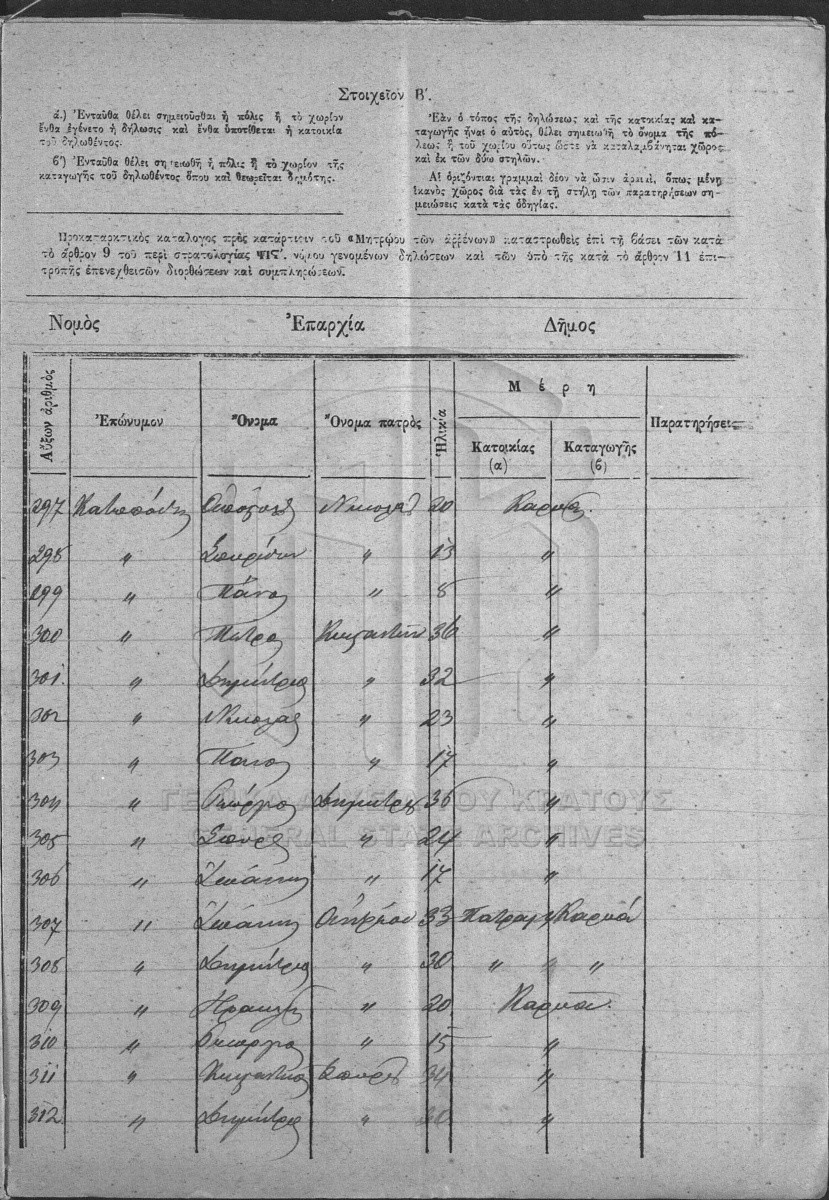 Στοιχεῖον Β′.
ά.) Ἐνταῦθα θέλει σημειοῦσθαι ἡ πόλις ἢ τὸ χωρίον
ἔνθα ἐγένετο ἡ δήλωσις καὶ ἔνθα ὑποτίθεται ἡ κατοικία
τοῦ δηλωθέντος.
β′) Ἐνταῦθα θέλει σημειωθῆ ἡ πόλις ἢ τὸ χωρίον τῆς
καταγωγῆς τοῦ δηλωθέντος ὅπου καὶ θεωρεῖται δημότης.
Ἐὰν ὁ τόπος τῆς δηλώσεως καὶ τῆς κατοικίας καὶ κα-
ταγωγῆς ἦναι ὁ αὐτὸς, θέλει σημειωθῆ τὸ ὄνομα τῆς πό-
λεως ἢ τοῦ χωρίου οὕτως ὥστε νὰ καταλαμβάνηται χῶρος
καὶ ἐκ τῶν δύω στηλῶν.
Αἱ ὁριζόντιαι γραμμαὶ δέον νὰ ὦσιν ἀραιαὶ, ὅπως μένῃ
ἱκανὸς χῶρος διὰ τὰς ἐν τῇ στήλῃ τῶν παρατηρήσεων ση-
μειώσεις κατὰ τὰς ὁδηγίας.
Προκαταρκτικὸς κατάλογος πρὸς κατάρτισιν τοῦ «Μητρῴου τῶν ἀῤῥένων» καταστρωθεὶς ἐπὶ τῇ βάσει τῶν κατὰ
τὸ ἄρθρον 9 τοῦ περὶ στρατολογίας ΨΙϚ′. νόμου γενομένων δηλώσεων καὶ τῶν ὑπὸ τῆς κατὰ τὸ ἄρθρον 11 ἐπι-
τροπῆς ἐπενεχθεισῶν διορθώσεων καὶ συμπληρώσεων.
Νομὸς Ἐπαρχία Δῆμος
Αὔξων ἀριθμὸς Ἐπώνυμον Ὄνομα Ὄνομα πατρὸς Ἡλικία Μέρη Παρατηρήσεις
Κατοικίας (α) Καταγωγῆς (β)
297 Νικολάου 20
298 " Σπυρίδων " 13 "
299 " Πάνος " 8 "
300 " Πέτρος Κωνσταντίνου 36 "
301 " Δημήτριος " 32 "
302 " Νικόλαος " 23 "
303 " Πάνος " 17 "
304 " Γεώργιος Δημητρίου 36 "
305 " Σπύρος " 24 "
306 " Ἰωάννης " 17 "
307 " Ἰωάννης 33 Καρυά
308 " Δημήτριος " 30 " " "
309 " " 20 Καρυά.
310 " Γεώργιος " 15 "
311 " Κωνσταντῖνος Σπύρου 34 "
312 " Δημήτριος " "
ΓΕΝΙΚΑ ΑΡΧΕΙΑ ΤΟΥ ΚΡΑΤΟΥΣ
GENERAL STATE ARCHIVES